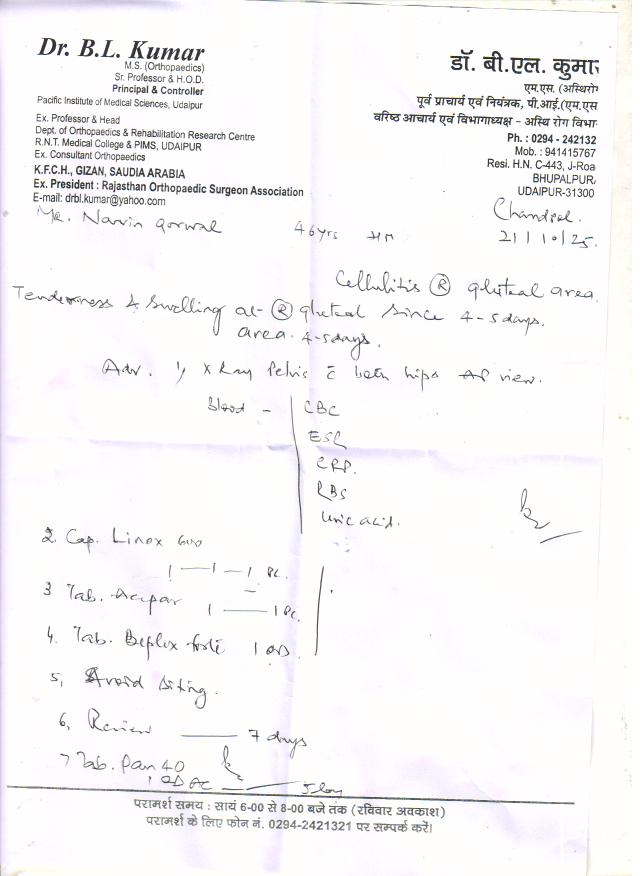 Dr. B.L. Kumar
M.S. (Orthopaedics)
Sr. Professor & H.O.D.
Principal & Controller
Pacific Institute of Medical Sciences, Udaipur
Ex. Professor & Head
Dept. of Orthopaedics & Rehabilitation Research Centre
R.N.T. Medical College & PIMS, UDAIPUR
Ex. Consultant Orthopaedics
K.F.C.H., GIZAN, SAUDIA ARABIA
Ex. President : Rajasthan Orthopaedic Surgeon Association
E-mail: drbl.kumar@yahoo.com
डॉ. बी.एल. कुमार
एम.एस. (अस्थिरो
पूर्व प्राचार्य एवं नियंत्रक, पी.आई.(एम.एस
वरिष्ठ आचार्य एवं विभागाध्यक्ष - अस्थि रोग विभा
Ph. : 0294 - 242132
Mob. : 941415767
Resi. H.N. C-443, J-Roa
BHUPALPUR
UDAIPUR-31300
Mr. Navin gorwal 46yrs HM
Chandpol.
21/10/25.
Cellulitis Ⓡ gluteal area.
Tenderness & Swelling at Ⓡ gluteal since 4-5days.
area. 4-5days.
Adv. 1, X Ray Pelvis c̄ both hips AP view.
Blood - CBC
ESR
CRP.
RBS
Uric acid.
2. Cap. Linox 600
1 — 1 — 1 PC.
3 Tab. 1 — 1 PC.
4. Tab. Beplex forte 1 OD.
5, Avoid siting.
6, Review — 7 days
7 Tab. Pan 40
1 OD AC — 5 day
परामर्श समय : सायं 6-00 से 8-00 बजे तक (रविवार अवकाश)
परामर्श के लिए फोन नं. 0294-2421321 पर सम्पर्क करें।